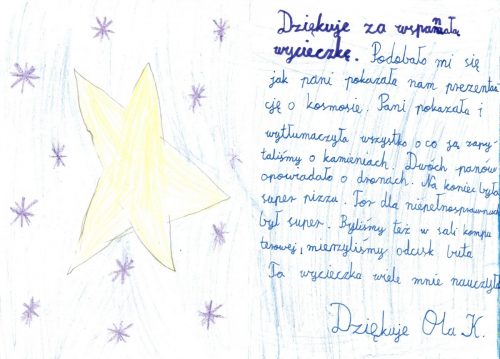 Dziękuje za wspaniałą
wycieczkę. Podobało mi się
jak pani pokazała nam prezenta
cję o kosmosie. Pani pokazała i
wytłumaczyła wszystko o co ją zapy
taliśmy o kamieniach. Dwóch panów
opowiadało o dronach. Na koniec była
super pizza. Tor dla niepełnosprawnych
był super. Byliśmy też w sali kompu
terowej, mierzyliśmy odcisk buta
Ta wycieczka wiele mnie nauczyła
Dziękuje Ola K.